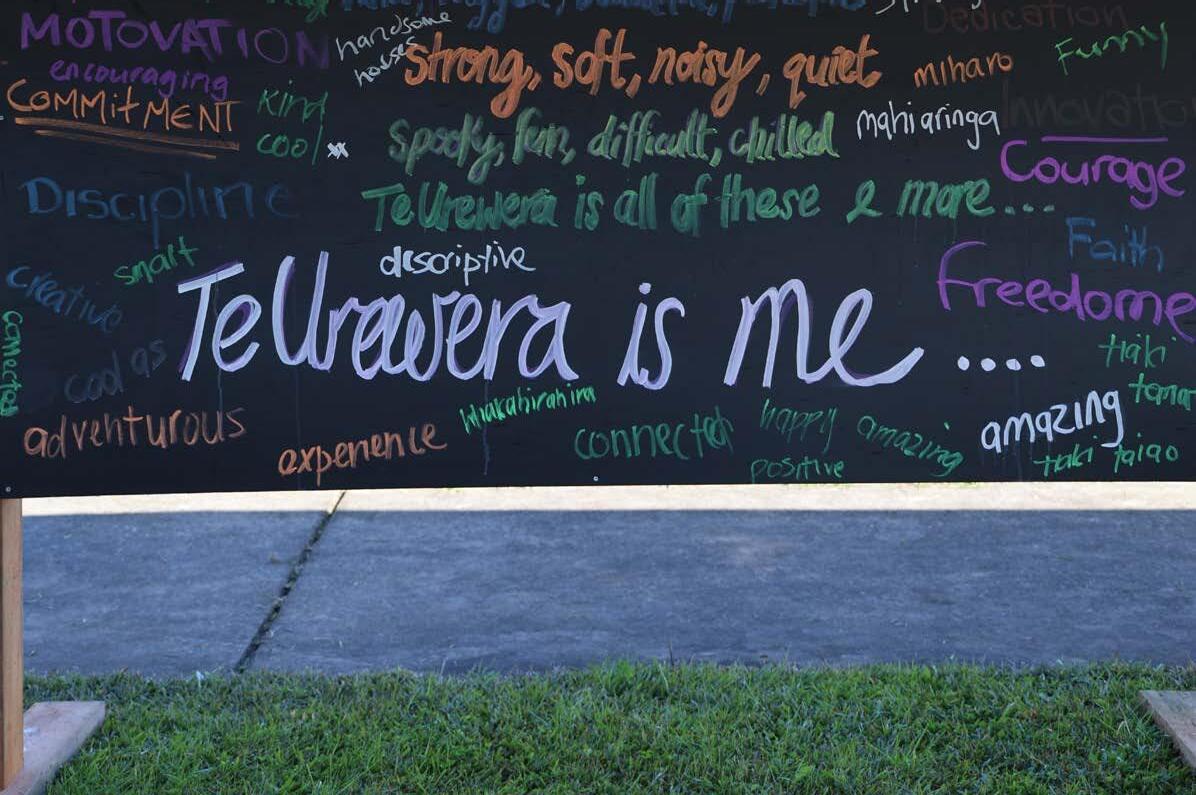 Dedication
MOTOVATION
handsome
houses
strong, soft, noisy, quiet
miharo
Funny
encouraging
COMMitMENT
Kind
cool xx
spooky, fun, difficult, chilled
mahi aringa
Innovatio
Courage
DISCIPLINE
Te Urewera is all of these & more...
Faith
smart
descriptive
creative
Te Urewera is me ....
freedome
connected
cool as
tiaki
taiao
adventurous
experience
whakahirahira
connected
happy
positive
amazing
amazing
tiaki